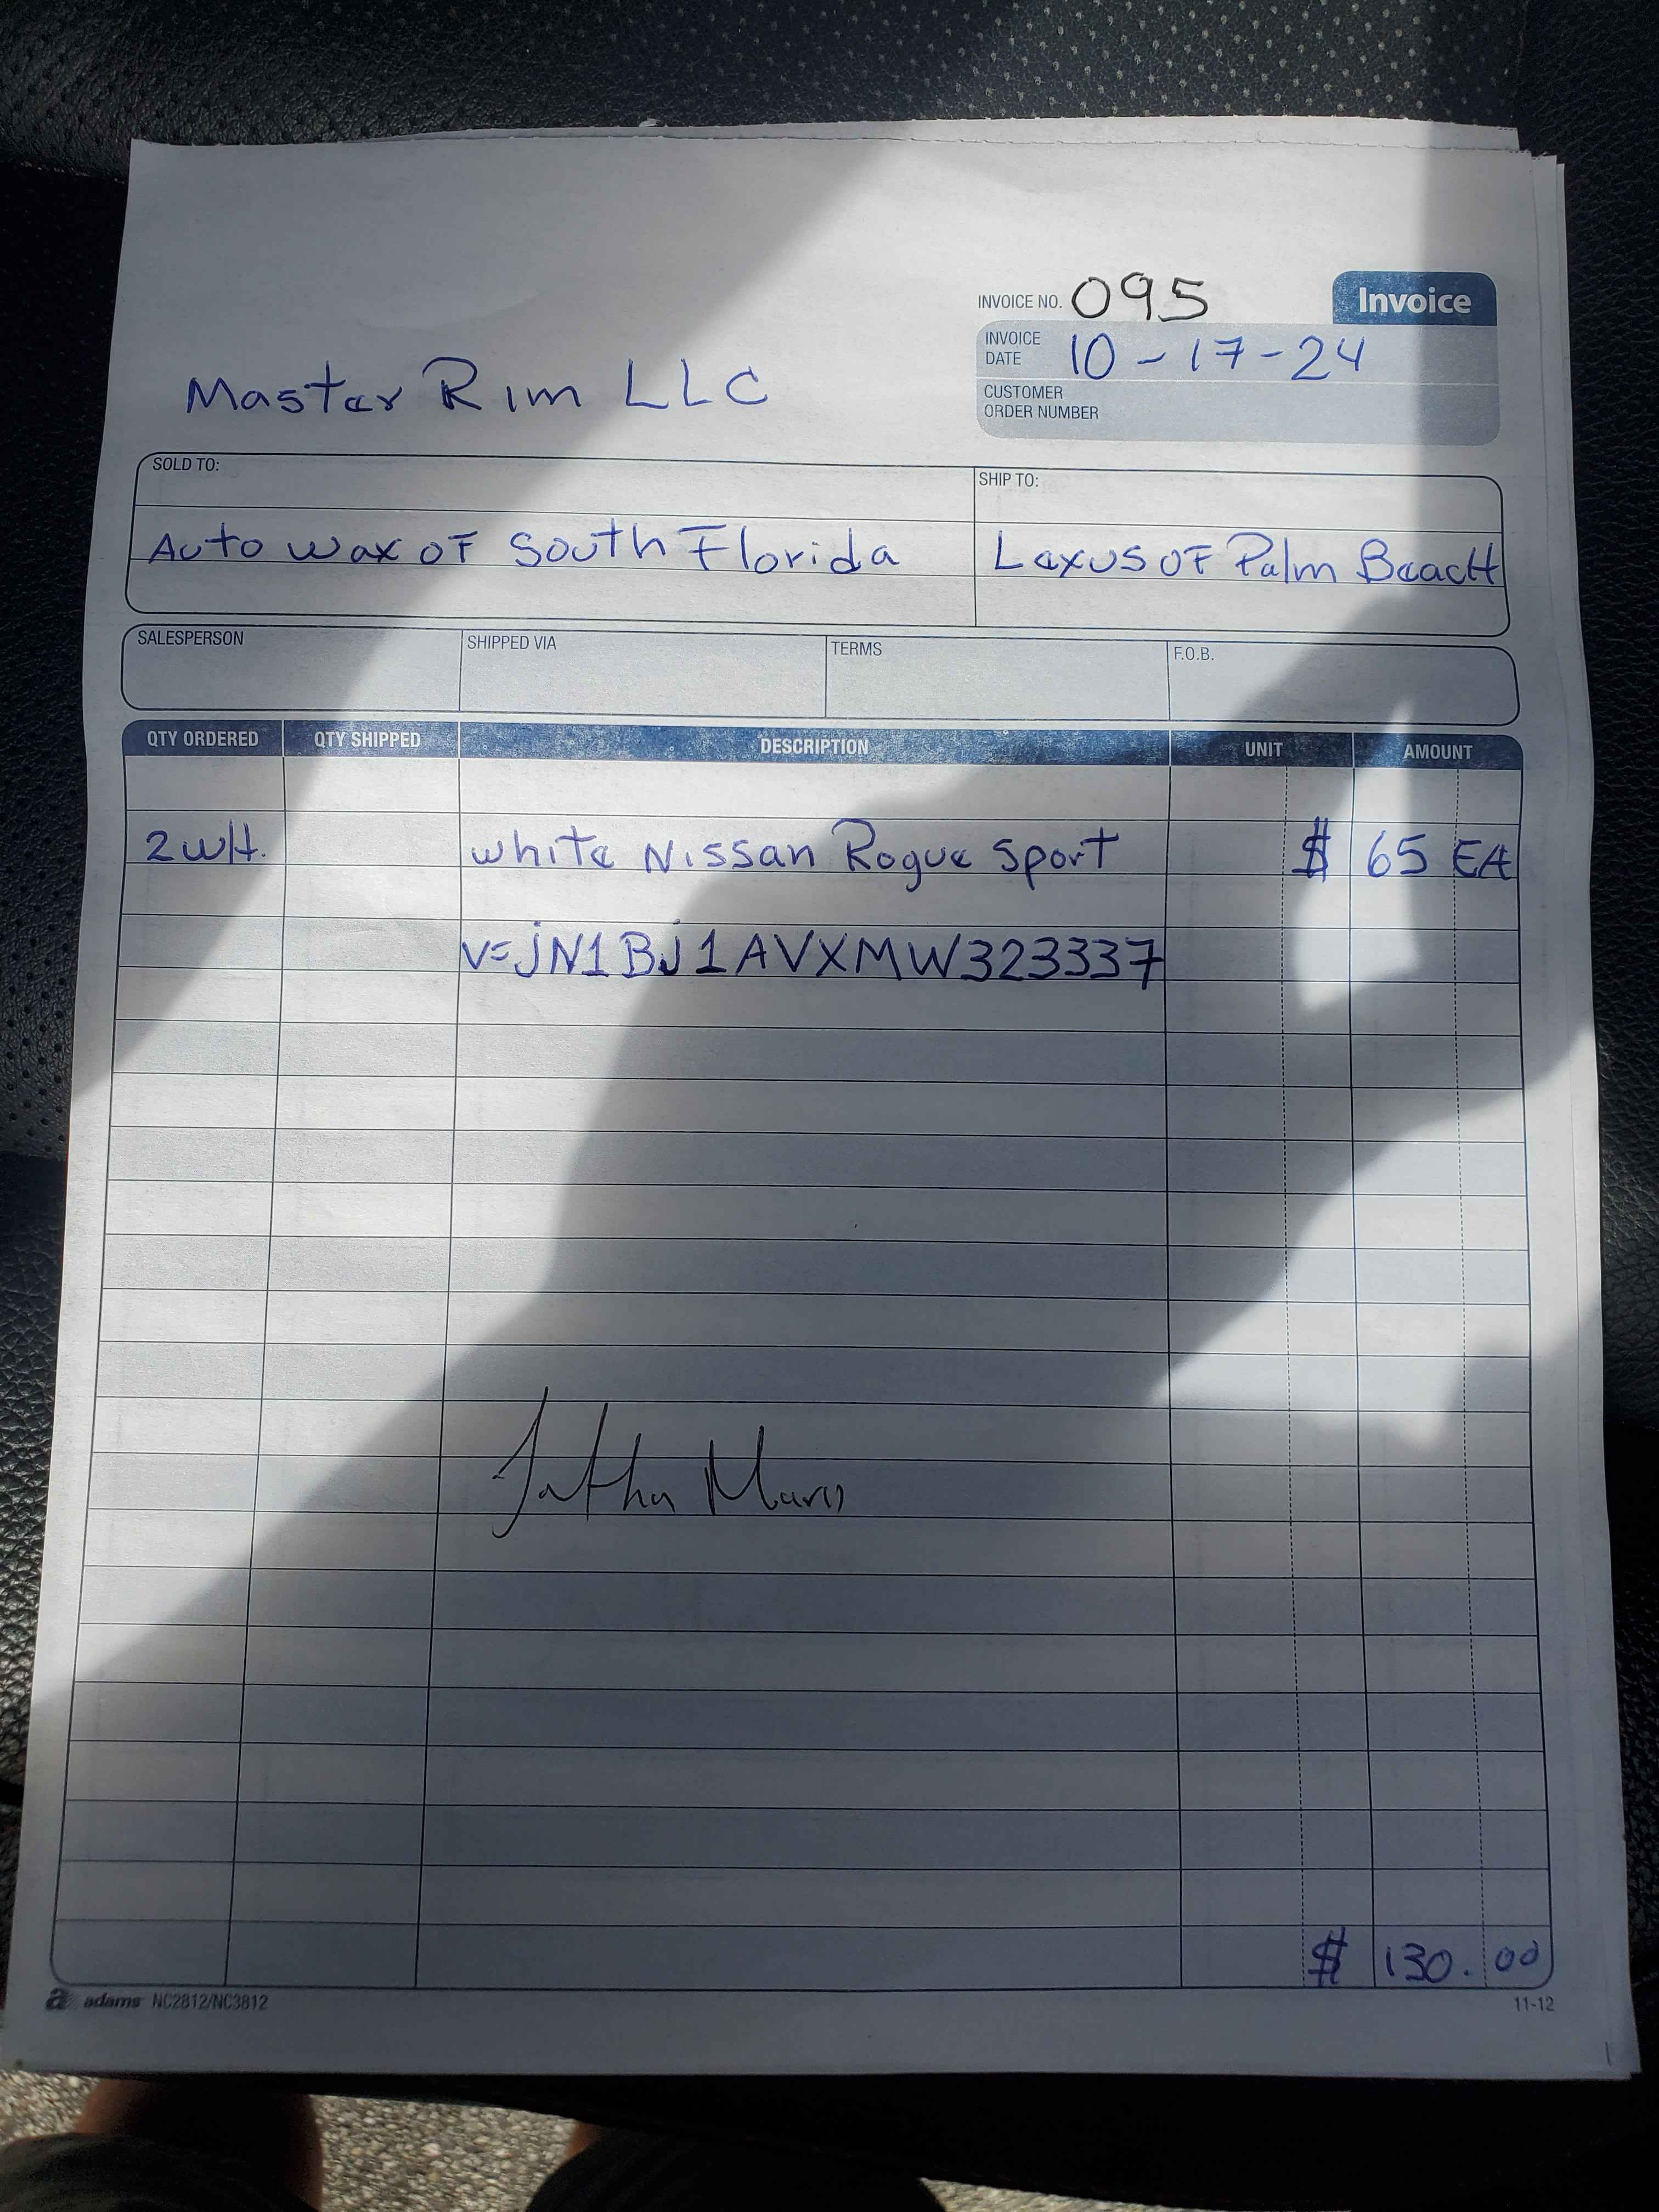 INVOICE NO. 095
Invoice
INVOICE DATE 10-17-24
CUSTOMER ORDER NUMBER
Master Rim LLC
SOLD TO:
Auto wax of South Florida
SHIP TO:
Lexus of Palm Beach
SALESPERSON SHIPPED VIA TERMS F.O.B.
QTY ORDERED QTY SHIPPED DESCRIPTION UNIT AMOUNT
2 WH. white Nissan Rogue Sport $ 65 EA
V=jN1Bj1AVXMW323337
$ 130.00
adams NC2812/NC3812
11-12